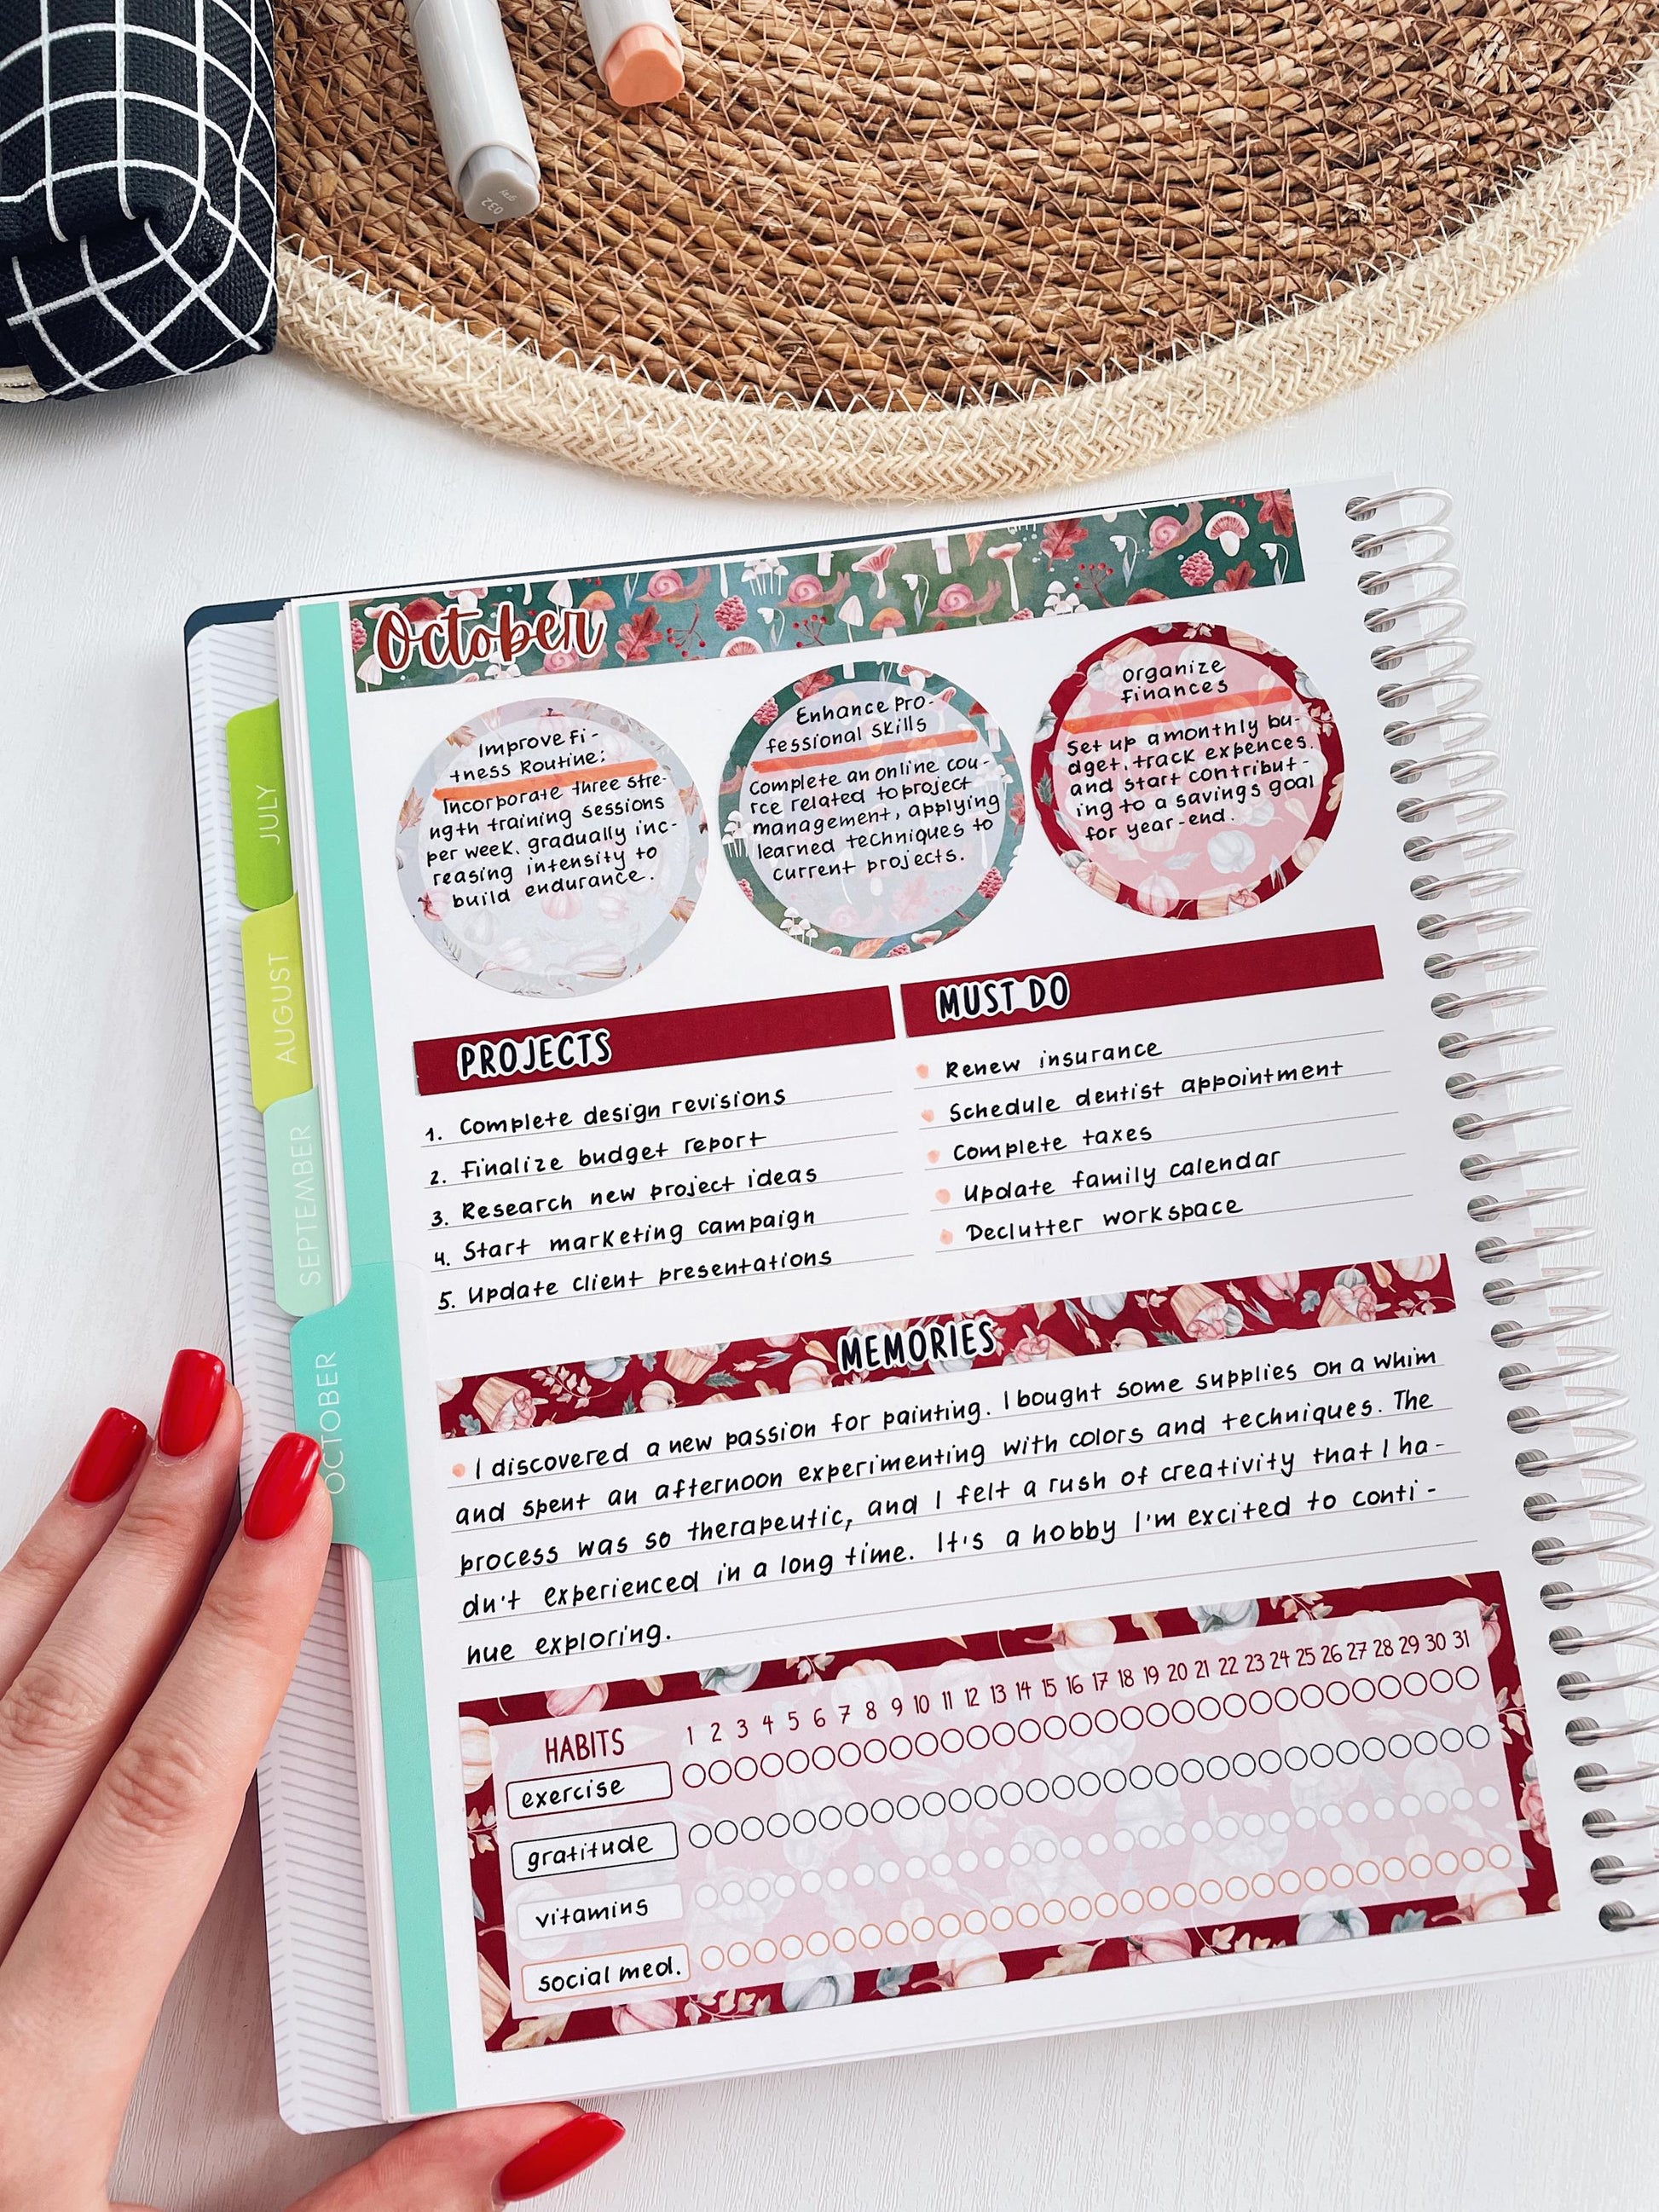 032
gray
October
Improve Fi-
tness Routine:
Incorporate three stre-
ngth training sessions
per week, gradually inc-
reasing intensity to
build endurance.
Enhance Pro-
fessional Skills
Complete an online cou-
rce related to project
management, applying
learned techniques to
current projects.
Organize
Finances
Set up a monthly bu-
dget, track expences,
and start contribut-
ing to a savings goal
for year-end.
JULY
AUGUST
SEPTEMBER
OCTOBER
PROJECTS
1. Complete design revisions
2. Finalize budget report
3. Research new project ideas
4. Start marketing campaign
5. Update client presentations
MUST DO
Renew insurance
Schedule dentist appointment
Complete taxes
Update family calendar
Declutter workspace
MEMORIES
I discovered a new passion for painting. I bought some supplies on a whim
and spent an afternoon experimenting with colors and techniques. The
process was so therapeutic, and I felt a rush of creativity that I ha-
dn't experienced in a long time. It's a hobby I'm excited to conti-
nue exploring.
HABITS 1 2 3 4 5 6 7 8 9 10 11 12 13 14 15 16 17 18 19 20 21 22 23 24 25 26 27 28 29 30 31
exercise
gratitude
vitamins
social med.